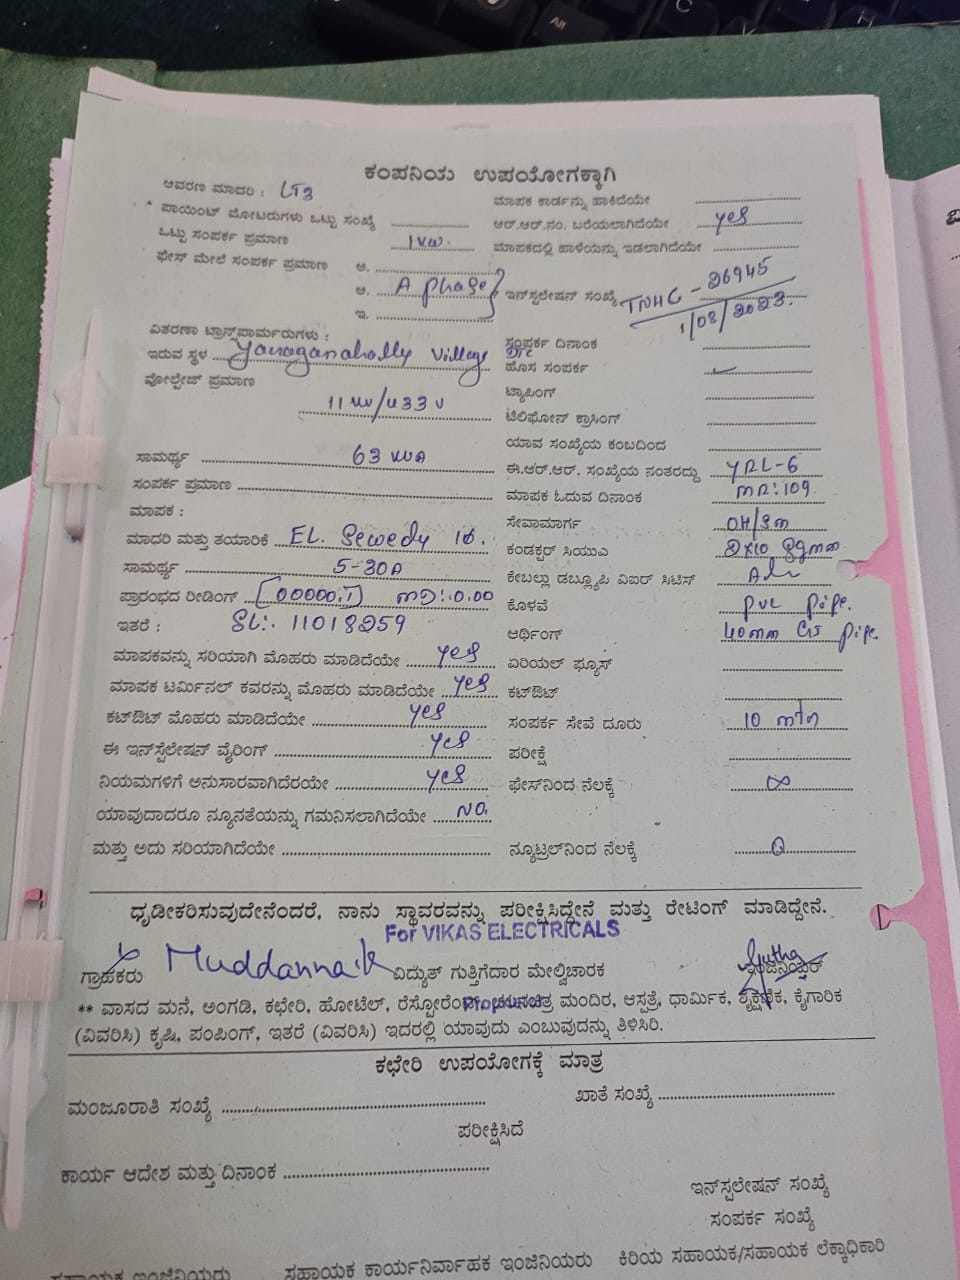 ಕಂಪನಿಯ ಉಪಯೋಗಕ್ಕಾಗಿ
ಆವರಣ ಮಾದರಿ : LT3
ಮಾಪಕ ಕಾರ್ಡನ್ನು ಹಾಕಿದೆಯೇ
ಪಾಯಿಂಟ್ ಮೋಟರುಗಳು ಒಟ್ಟು ಸಂಖ್ಯೆ
ಆರ್.ಆರ್.ನಂ. ಬರೆಯಲಾಗಿದೆಯೇ yes
ಒಟ್ಟು ಸಂಪರ್ಕ ಪ್ರಮಾಣ 1KW.
ಮಾಪಕದಲ್ಲಿ ಹಾಳೆಯನ್ನು ಇಡಲಾಗಿದೆಯೇ
ಫೇಸ್ ಮೇಲೆ ಸಂಪರ್ಕ ಪ್ರಮಾಣ ಅ.
ಆ. A phase
ಇನ್‌ಸ್ಟಲೇಷನ್ ಸಂಖ್ಯೆ TNHG-26945
1/08/2023.
ಇ.
ವಿತರಣಾ ಟ್ರಾನ್ಸ್‌ಫಾರ್ಮರುಗಳು :
ಸಂಪರ್ಕ ದಿನಾಂಕ
ಇರುವ ಸ್ಥಳ Yaraganahally Village
ಹೊಸ ಸಂಪರ್ಕ
ವೋಲ್ಟೇಜ್ ಪ್ರಮಾಣ
ಟ್ಯಾಪಿಂಗ್
11KV/433V
ಟೆಲಿಫೋನ್ ಕ್ರಾಸಿಂಗ್
ಯಾವ ಸಂಖ್ಯೆಯ ಕಂಬದಿಂದ
ಸಾಮರ್ಥ್ಯ 63 KVA
ಈ.ಆರ್.ಆರ್. ಸಂಖ್ಯೆಯ ನಂತರದ್ದು YRL-6
ಸಂಪರ್ಕ ಪ್ರಮಾಣ
ಮಾಪಕ ಓದುವ ದಿನಾಂಕ MR:109
ಮಾಪಕ :
ಸೇವಾಮಾರ್ಗ OH/Sm
ಮಾದರಿ ಮತ್ತು ತಯಾರಿಕೆ EL. Sewedy
ಕಂಡಕ್ಟರ್ ಸಿಯುಎ 2x10 Sqmm
ಸಾಮರ್ಥ್ಯ 5-30A
ಕೇಬಲ್ಲು ಡಬ್ಲ್ಯೂಪಿ ವಿಐಆರ್ ಸಿಟಿಸ್
ಪ್ರಾರಂಭದ ರೀಡಿಂಗ್ 00000.1 MD:0.00
ಕೊಳವೆ pvc pipe.
ಇತರೆ : SL:. 11018259
ಆರ್ಥಿಂಗ್ 40mm GI pipe.
ಮಾಪಕವನ್ನು ಸರಿಯಾಗಿ ಮೊಹರು ಮಾಡಿದೆಯೇ yes
ಏರಿಯಲ್ ಫ್ಯೂಸ್
ಮಾಪಕ ಟರ್ಮಿನಲ್ ಕವರನ್ನು ಮೊಹರು ಮಾಡಿದೆಯೇ yes
ಕಟ್‌ಔಟ್
ಕಟ್‌ಔಟ್ ಮೊಹರು ಮಾಡಿದೆಯೇ yes
ಸಂಪರ್ಕ ಸೇವೆ ದೂರು 10 mtr
ಈ ಇನ್‌ಸ್ಟೆಲೇಷನ್ ವೈರಿಂಗ್ yes
ಪರೀಕ್ಷೆ
ನಿಯಮಗಳಿಗೆ ಅನುಸಾರವಾಗಿದೆರಯೇ yes
ಫೇಸ್‌ನಿಂದ ನೆಲಕ್ಕೆ ∞
ಯಾವುದಾದರೂ ನ್ಯೂನತೆಯನ್ನು ಗಮನಿಸಲಾಗಿದೆಯೇ NO.
ಮತ್ತು ಅದು ಸರಿಯಾಗಿದೆಯೇ
ನ್ಯೂಟ್ರಲ್‌ನಿಂದ ನೆಲಕ್ಕೆ 0
ಧೃಡೀಕರಿಸುವುದೇನೆಂದರೆ, ನಾನು ಸ್ಥಾವರವನ್ನು ಪರೀಕ್ಷಿಸಿದ್ದೇನೆ ಮತ್ತು ರೇಟಿಂಗ್ ಮಾಡಿದ್ದೇನೆ.
For VIKAS ELECTRICALS
ಗ್ರಾಹಕರು Muddannaik ವಿದ್ಯುತ್ ಗುತ್ತಿಗೆದಾರ ಮೇಲ್ವಿಚಾರಕ ಇಂಜಿನಿಯರ್
** ವಾಸದ ಮನೆ, ಅಂಗಡಿ, ಕಛೇರಿ, ಹೋಟೆಲ್, ರೆಸ್ಟೋರೆಂಟ್, ಚಲನಚಿತ್ರ ಮಂದಿರ, ಆಸ್ಪತ್ರೆ, ಧಾರ್ಮಿಕ, ಶೈಕ್ಷಣಿಕ, ಕೈಗಾರಿಕ
(ವಿವರಿಸಿ) ಕೃಷಿ, ಪಂಪಿಂಗ್, ಇತರೆ (ವಿವರಿಸಿ) ಇದರಲ್ಲಿ ಯಾವುದು ಎಂಬುವುದನ್ನು ತಿಳಿಸಿರಿ.
ಕಛೇರಿ ಉಪಯೋಗಕ್ಕೆ ಮಾತ್ರ
ಮಂಜೂರಾತಿ ಸಂಖ್ಯೆ
ಖಾತೆ ಸಂಖ್ಯೆ
ಪರೀಕ್ಷಿಸಿದೆ
ಕಾರ್ಯ ಆದೇಶ ಮತ್ತು ದಿನಾಂಕ
ಇನ್‌ಸ್ಟಲೇಷನ್ ಸಂಖ್ಯೆ
ಸಂಪರ್ಕ ಸಂಖ್ಯೆ
ಸಹಾಯಕ ಇಂಜಿನಿಯರು ಸಹಾಯಕ ಕಾರ್ಯನಿರ್ವಾಹಕ ಇಂಜಿನಿಯರು ಕಿರಿಯ ಸಹಾಯಕ/ಸಹಾಯಕ ಲೆಕ್ಕಾಧಿಕಾರಿ